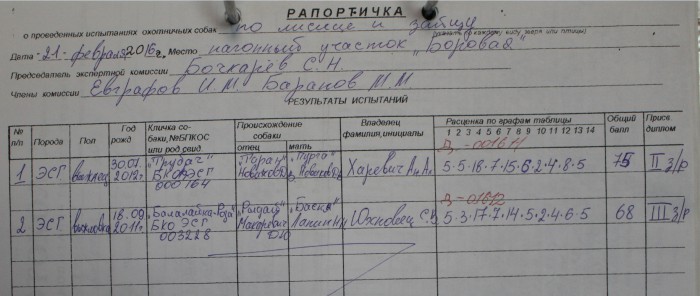 РАПОРТИЧКА
о проведенных испытаниях охотничьих собак по лисице и зайцу
Дата 21 февраля 2016г. Место нагонный участок "Боровая"
Председатель экспертной комиссии Бочкарёв С.Н.
Члены комиссии Евграфов И.М. Баранов М.М.
РЕЗУЛЬТАТЫ ИСПЫТАНИЙ
№ п/п Порода Пол Год рожд Кличка собаки, №БПКОС или род.свид. Происхождение собаки отец мать Владелец фамилия, инициалы Расценка по графам таблицы 1 2 3 4 5 6 7 8 9 10 11 12 13 14 Общий балл Присв. диплом
1 ЭСГ выжлец 30.01. 2012г. "Трубач" БКО ЭСГ 000764 Харевич А.А. Д-001611 5·5·18·7·15·6·2·4·8·5 75 II з/р
2 ЭСГ выжловка 18.09. 2011г. "Балалайка-Роза" БКО ЭСГ 003228 "Рыдай" Макаревич "Баська" Лапин Южновец С.В. 5·3·17·7·14·5·2·4·6·5 68 III з/р